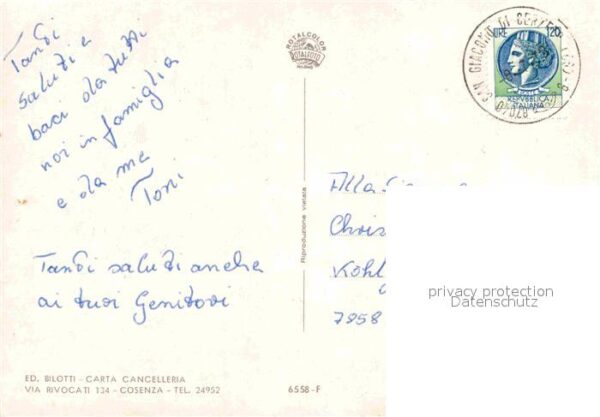 Tanti
saluti e
baci da tutti
noi in famiglia
e da me
Toni
Tanti saluti anche
ai tuoi Genitori
ED. BILOTTI - CARTA CANCELLERIA
VIA RIVOCATI 134 - COSENZA - TEL. 24952
6558-F
ROTALCOLOR
ROTALFOTO
Riproduzione vietata
LIRE 120
REPVBBLICA
ITALIANA
SAN GIACOMO DI CERZETO
87040
Alla
Chris
Kohl
7958
privacy protection
Datenschutz